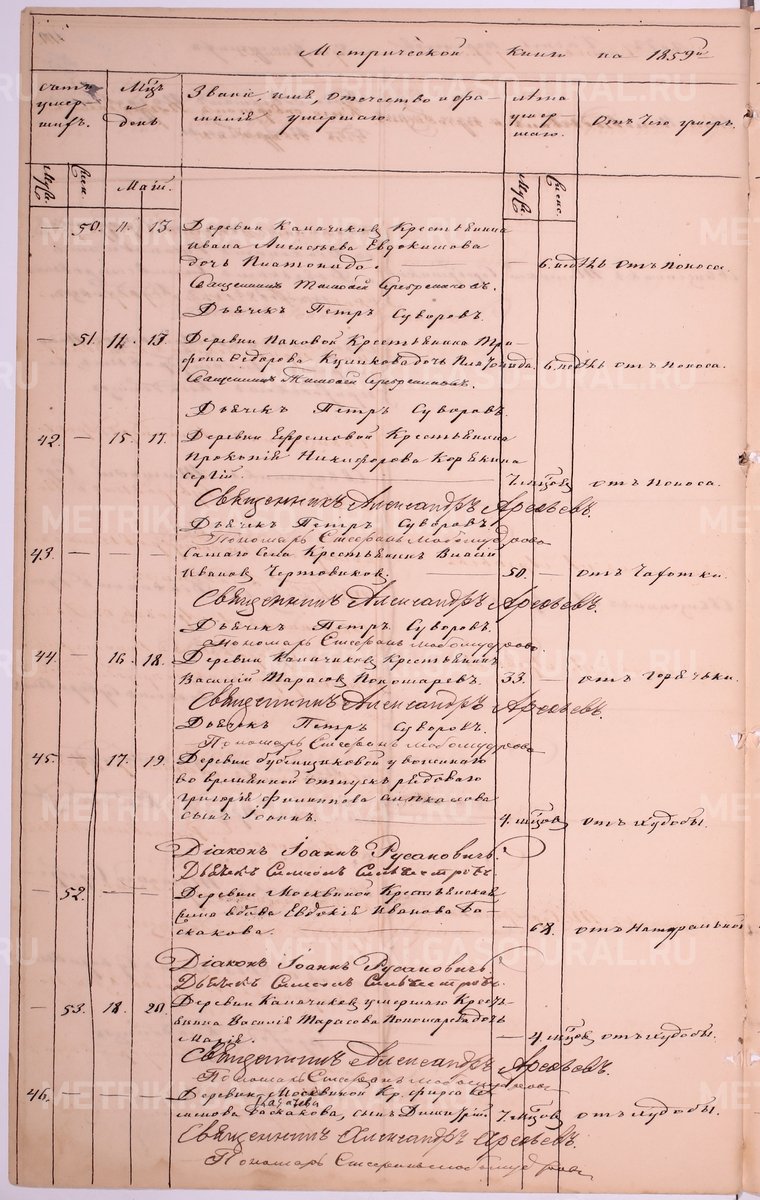 Метрической Книги на 1859й
Счетъ умершихъ.
Мцъ и день
Званіе, имя, отечество и фамилія умершаго.
Лѣта умершаго.
Отъ чего умеръ.
Муж. Жен.
Маій.
Муж. Женс.
— 50. 11. 13. Деревни Калачиков Крестьянина
Ивана Евдокимова
дочь Платонида. — 6. недѣль отъ поноса.
Священникъ Тимофей Серебрениковъ.
Дьячекъ Петръ Суворовъ.
— 51. 14. 17. Деревни Крестьянина Трофима
Федорова Куликова дочь Платонида. 6. недѣль отъ поноса.
Священникъ Тимофей Серебрениковъ.
Дьячекъ Петръ Суворовъ.
42. — 15. 17. Деревни Ефремовой Крестьянина
Прокопія Никифорова Корякина
Сергій. 7. мѣсяцов отъ поноса.
Священникъ Александръ Арефьевъ.
Дьячекъ Петръ Суворовъ
Пономарь Стефанъ Любомудровъ
43. — — — Самаго Села Крестьянинъ
Иванов — 50. — отъ Чахотки.
Священникъ Александръ Арефьевъ.
Дьячекъ Петръ Суворовъ.
Пономарь Стефанъ Любомудровъ.
44. — 16. 18. Деревни Калачиков Крестьянинъ
Василій Тарасов Пономаревъ. 33. — отъ Горячьки.
Священникъ Александръ Арефьевъ.
Дьячекъ Петръ Суворовъ.
Пономарь Стефанъ Любомудровъ
45. — 17. 19. Деревни уволеннаго
во временной отпускъ рядоваго
Григорія Филиппова
сынъ Іоаннъ. — 4. мѣсяцов отъ худобы.
Діаконъ Іоаннъ Русановичъ.
Дьячекъ Симеонъ Сильвестровъ
— 52. — — Деревни Москвиной Крестьянская
вдова Евдокія Иванова Баскакова.
— 68. отъ Натуральной
Діаконъ Іоаннъ Русановичъ
Дьячекъ Симеонъ Сильвестровъ.
— 53. 18. 20. Деревни Калачиков умершаго Крестьянина
Василія Тарасова Пономарева дочь
Марія. — 4. мѣсяцов отъ худобы.
Священникъ Александръ Арефьевъ.
Пономарь Стефанъ Любомудровъ
46. — — — Деревни Москвиной Кр.
Баскакова, сынъ Димитрій. 7. мѣсяцов отъ худобы.
Священникъ Александръ Арефьевъ.
Пономарь Стефанъ Любомудровъ
METRIKI.GASO-URAL.RU